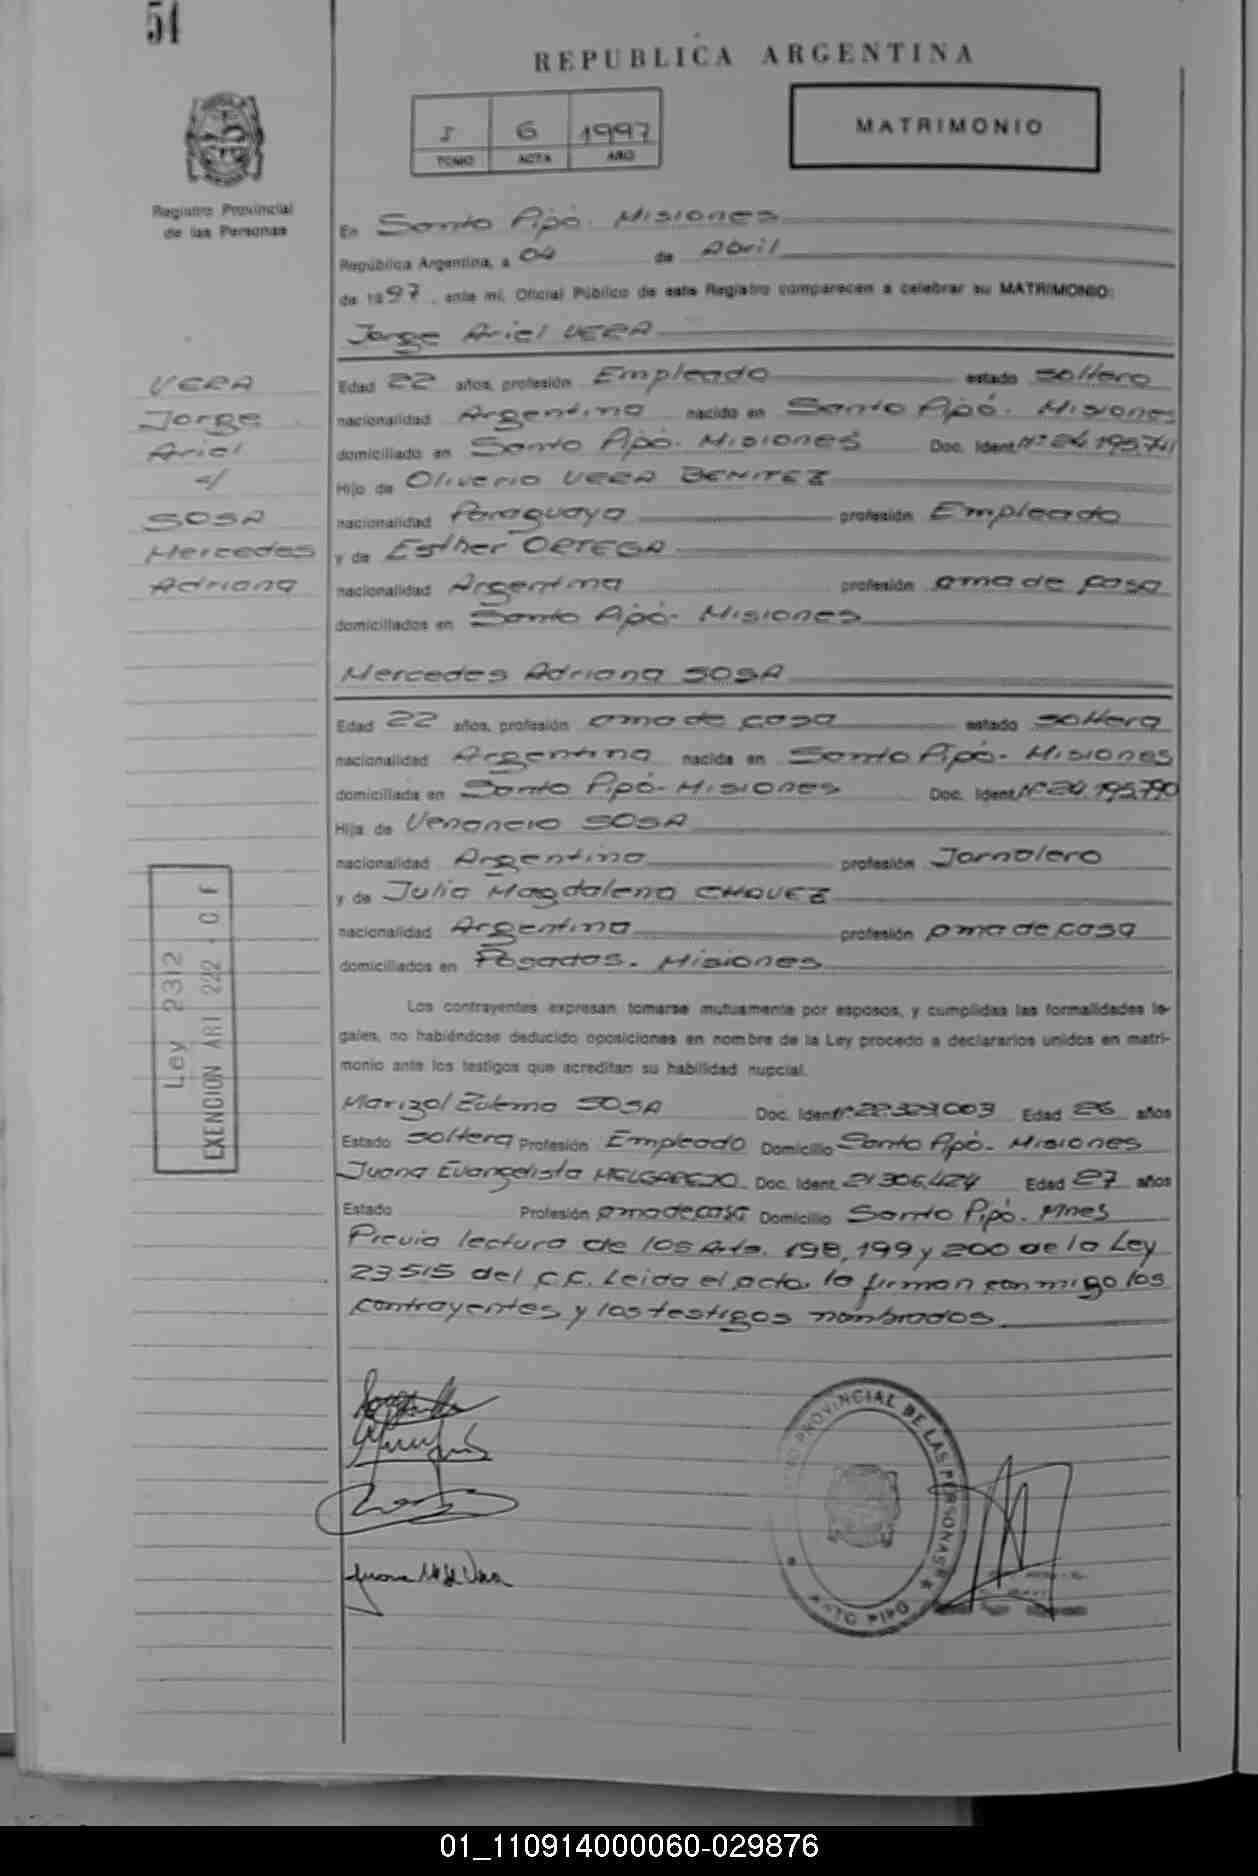 54
REPUBLICA ARGENTINA
I 6 1997
TOMO ACTA AÑO
MATRIMONIO
Registro Provincial
de las Personas
En Santo Pipó. Misiones
República Argentina, a 04 de Abril
de 1997, ante mí, Oficial Público de este Registro comparecen a celebrar su MATRIMONIO:
Jorge Ariel VERA
VERA
Jorge
Ariel
c/
SOSA
Mercedes
Adriana
Edad 22 años, profesión Empleado estado soltero
nacionalidad Argentina nacido en Santo Pipó. Misiones
domiciliado en Santo Pipó. Misiones Doc. Ident. Nº 24.195.741
Hijo de Oliverio VERA BENITEZ
nacionalidad Paraguaya profesión Empleado
y de Esther ORTEGA
nacionalidad Argentina profesión ama de casa
domiciliados en Santo Pipó. Misiones
Mercedes Adriana SOSA
Edad 22 años, profesión ama de casa estado soltera
nacionalidad Argentina nacida en Santo Pipó. Misiones
domiciliada en Santo Pipó. Misiones Doc. Ident. Nº 24.195.790
Hija de Venancio SOSA
nacionalidad Argentina profesión Jornalero
y de Julia Magdalena CHAVEZ
nacionalidad Argentina profesión ama de casa
domiciliados en Posadas. Misiones
Ley 2312
EXENCION ART 222
Los contrayentes expresan tomarse mutuamente por esposos, y cumplidas las formalidades le-
gales, no habiéndose deducido oposiciones en nombre de la Ley procedo a declararlos unidos en matri-
monio ante los testigos que acreditan su habilidad nupcial.
Marizol Zulema SOSA Doc. Ident. Nº 22.329.003 Edad 26 años
Estado soltera Profesión Empleado Domicilio Santo Pipó. Misiones
Juana Evangelista MELGAREJO Doc. Ident. 21.306.424 Edad 27 años
Estado Profesión ama de casa Domicilio Santo Pipó. Mnes
Previa lectura de los Arts. 198, 199 y 200 de la Ley
23515 del C.C. Leida el acta, la firman conmigo los
contrayentes y los testigos nombrados
PROVINCIAL DE LAS PERSONAS
SANTO PIPO
01_110914000060-029876